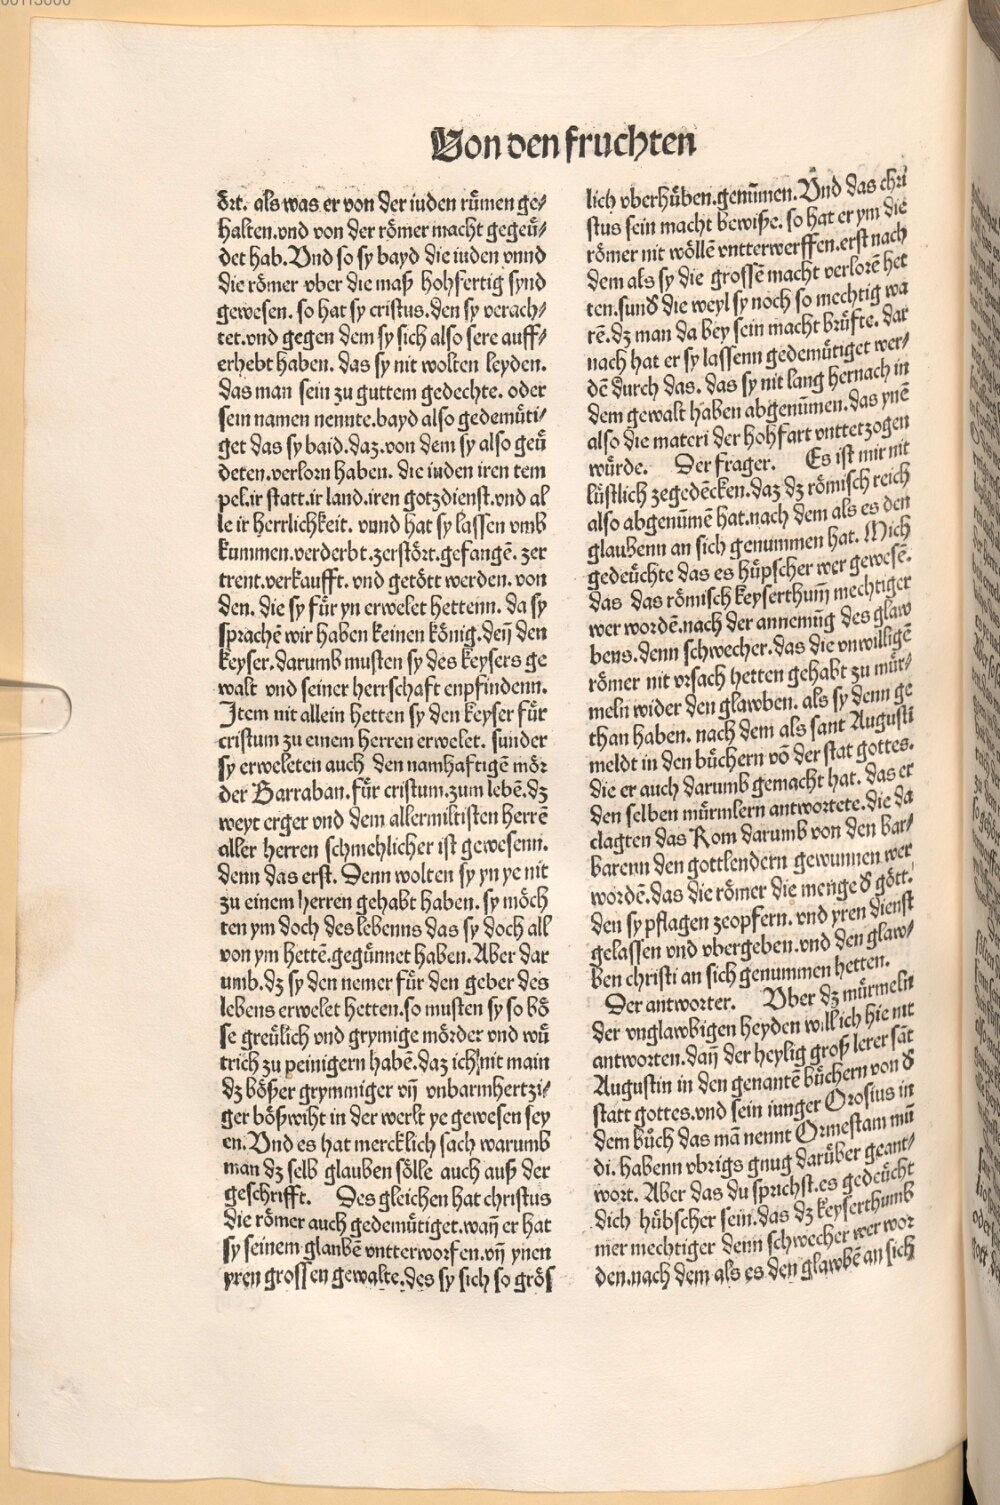 Von den fruchten
ört. als was er von der iuden rümen ge⸗
halten.vnd von der römer macht gegeü⸗
det hab.Vnd so sy bayd die iuden vnnd
die römer vber die maß hohfertig synd
gewesen. so hat sy cristus.den sy verach⸗
tet.vnd gegen dem sy sich also sere auff⸗
erhebt haben. das sy nit wolten leyden.
das man sein zu guttem gedechte. oder
sein namen nennte.bayd also gedemüti⸗
get das sy baid.daz.von dem sy also geü
deten.verlorn haben. die iuden iren tem
pel.ir statt.ir land.iren gotzdienst.vnd al
le ir herrlichkeit. vnnd hat sy lassen vmb
kummen.verderbt.zerstört.gefangē. zer
trent.verkaufft. vnd getött werden. von
den. die sy für yn erwelet hettenn. da sy
sprachē wir haben keinen könig.deñ den
keyser.darumb musten sy des keysers ge
walt vnd seiner herrschaft enpfindenn.
Item nit allein hetten sy den keyser für
cristum zu einem herren erwelet. sunder
sy erweleten auch den namhaftigē mör
der Barraban.für cristum.zum lebē.dz
weyt erger vnd dem allermiltisten herrē
aller herren schmehlicher ist gewesenn.
denn das erst. Denn wolten sy yn ye nit
zu einem herren gehabt haben. sy möch
ten ym doch des lebenns das sy doch all
von ym hettē.gegünnet haben.Aber dar
umb.dz sy den nemer für den geber des
lebens erwelet hetten.so musten sy so bö
se greülich vnd grymige mörder vnd wü
trich zu peinigern habē.daz ich nit main
dz bößer grymmiger vñ vnbarmhertzi⸗
ger bößwiht in der werlt ye gewesen sey
en.Vnd es hat mercklich sach warumb
man dz selb glauben sölle auch auß der
geschrifft. Des gleichen hat christus
die römer auch gedemütiget.wañ er hat
sy seinem glaubē vntterworfen.vñ ynen
yren grossen gewalte.des sy sich so grös
lich vberhüben.genūmen.Vnd das chri
stus sein macht bewiße. so hat er ym die
römer nit wöllē vntterwerffen.erst nach
dem als sy die grossē macht verlorē het
ten.sunđ die weyl sy noch so mechtig wa
rē.dz man da bey sein macht brüfte. dar
nach hat er sy lassenn gedemütiget wer⸗
dē durch das. das sy nit lang hernach in
dem gewalt haben abgenūmen.das ynē
also die materi der hohfart vnttetzogen
würde. Der frager. Es ist mir nit
lüstlich zegedēcken.daz dz römisch reich
also abgenūmē hat.nach dem als es den
glaubenn an sich genummen hat. Mich
gedeüchte das es hüpscher wer gewesē.
das das römisch keyserthum̃ mechtiger
wer wordē.nach der annemūg des glaw
bens.denn schwecher.das die vnwilligē
römer nit vrsach hetten gehabt zu mür⸗
meln wider den glawben. als sy denn ge
than haben. nach dem als sant Augusti
meldt in den büchern vō der stat gottes.
die er auch darumb gemacht hat. das er
den selben mürmlern antwortete.die da
clagten das Rom darumb von den bar⸗
barenn den gottlendern gewunnen wer
wordē.das die römer die menge đ gött.
den sy pflagen zeopfern. vnd yren dienst
gelassen vnd vbergeben.vnd den glaw⸗
ben christi an sich genummen hetten.
Der antworter. Vber dz mürmeln
der vnglawbigen heyden will ich hie nit
antworten.dañ der heylig groß lerer sāt
Augustin in den genantē büchern von đ
statt gottes.vnd sein iunger Orosius in
dem büch das mā nennt Ormestam mū
di. habenn vbrigs gnug darüber geant⸗
wort. Aber das du sprichst.es gedeücht
dich hübscher sein.das dz keyserthumb
mer mechtiger denn schwecher wer wor
den.nach dem als es den glawbē an sich